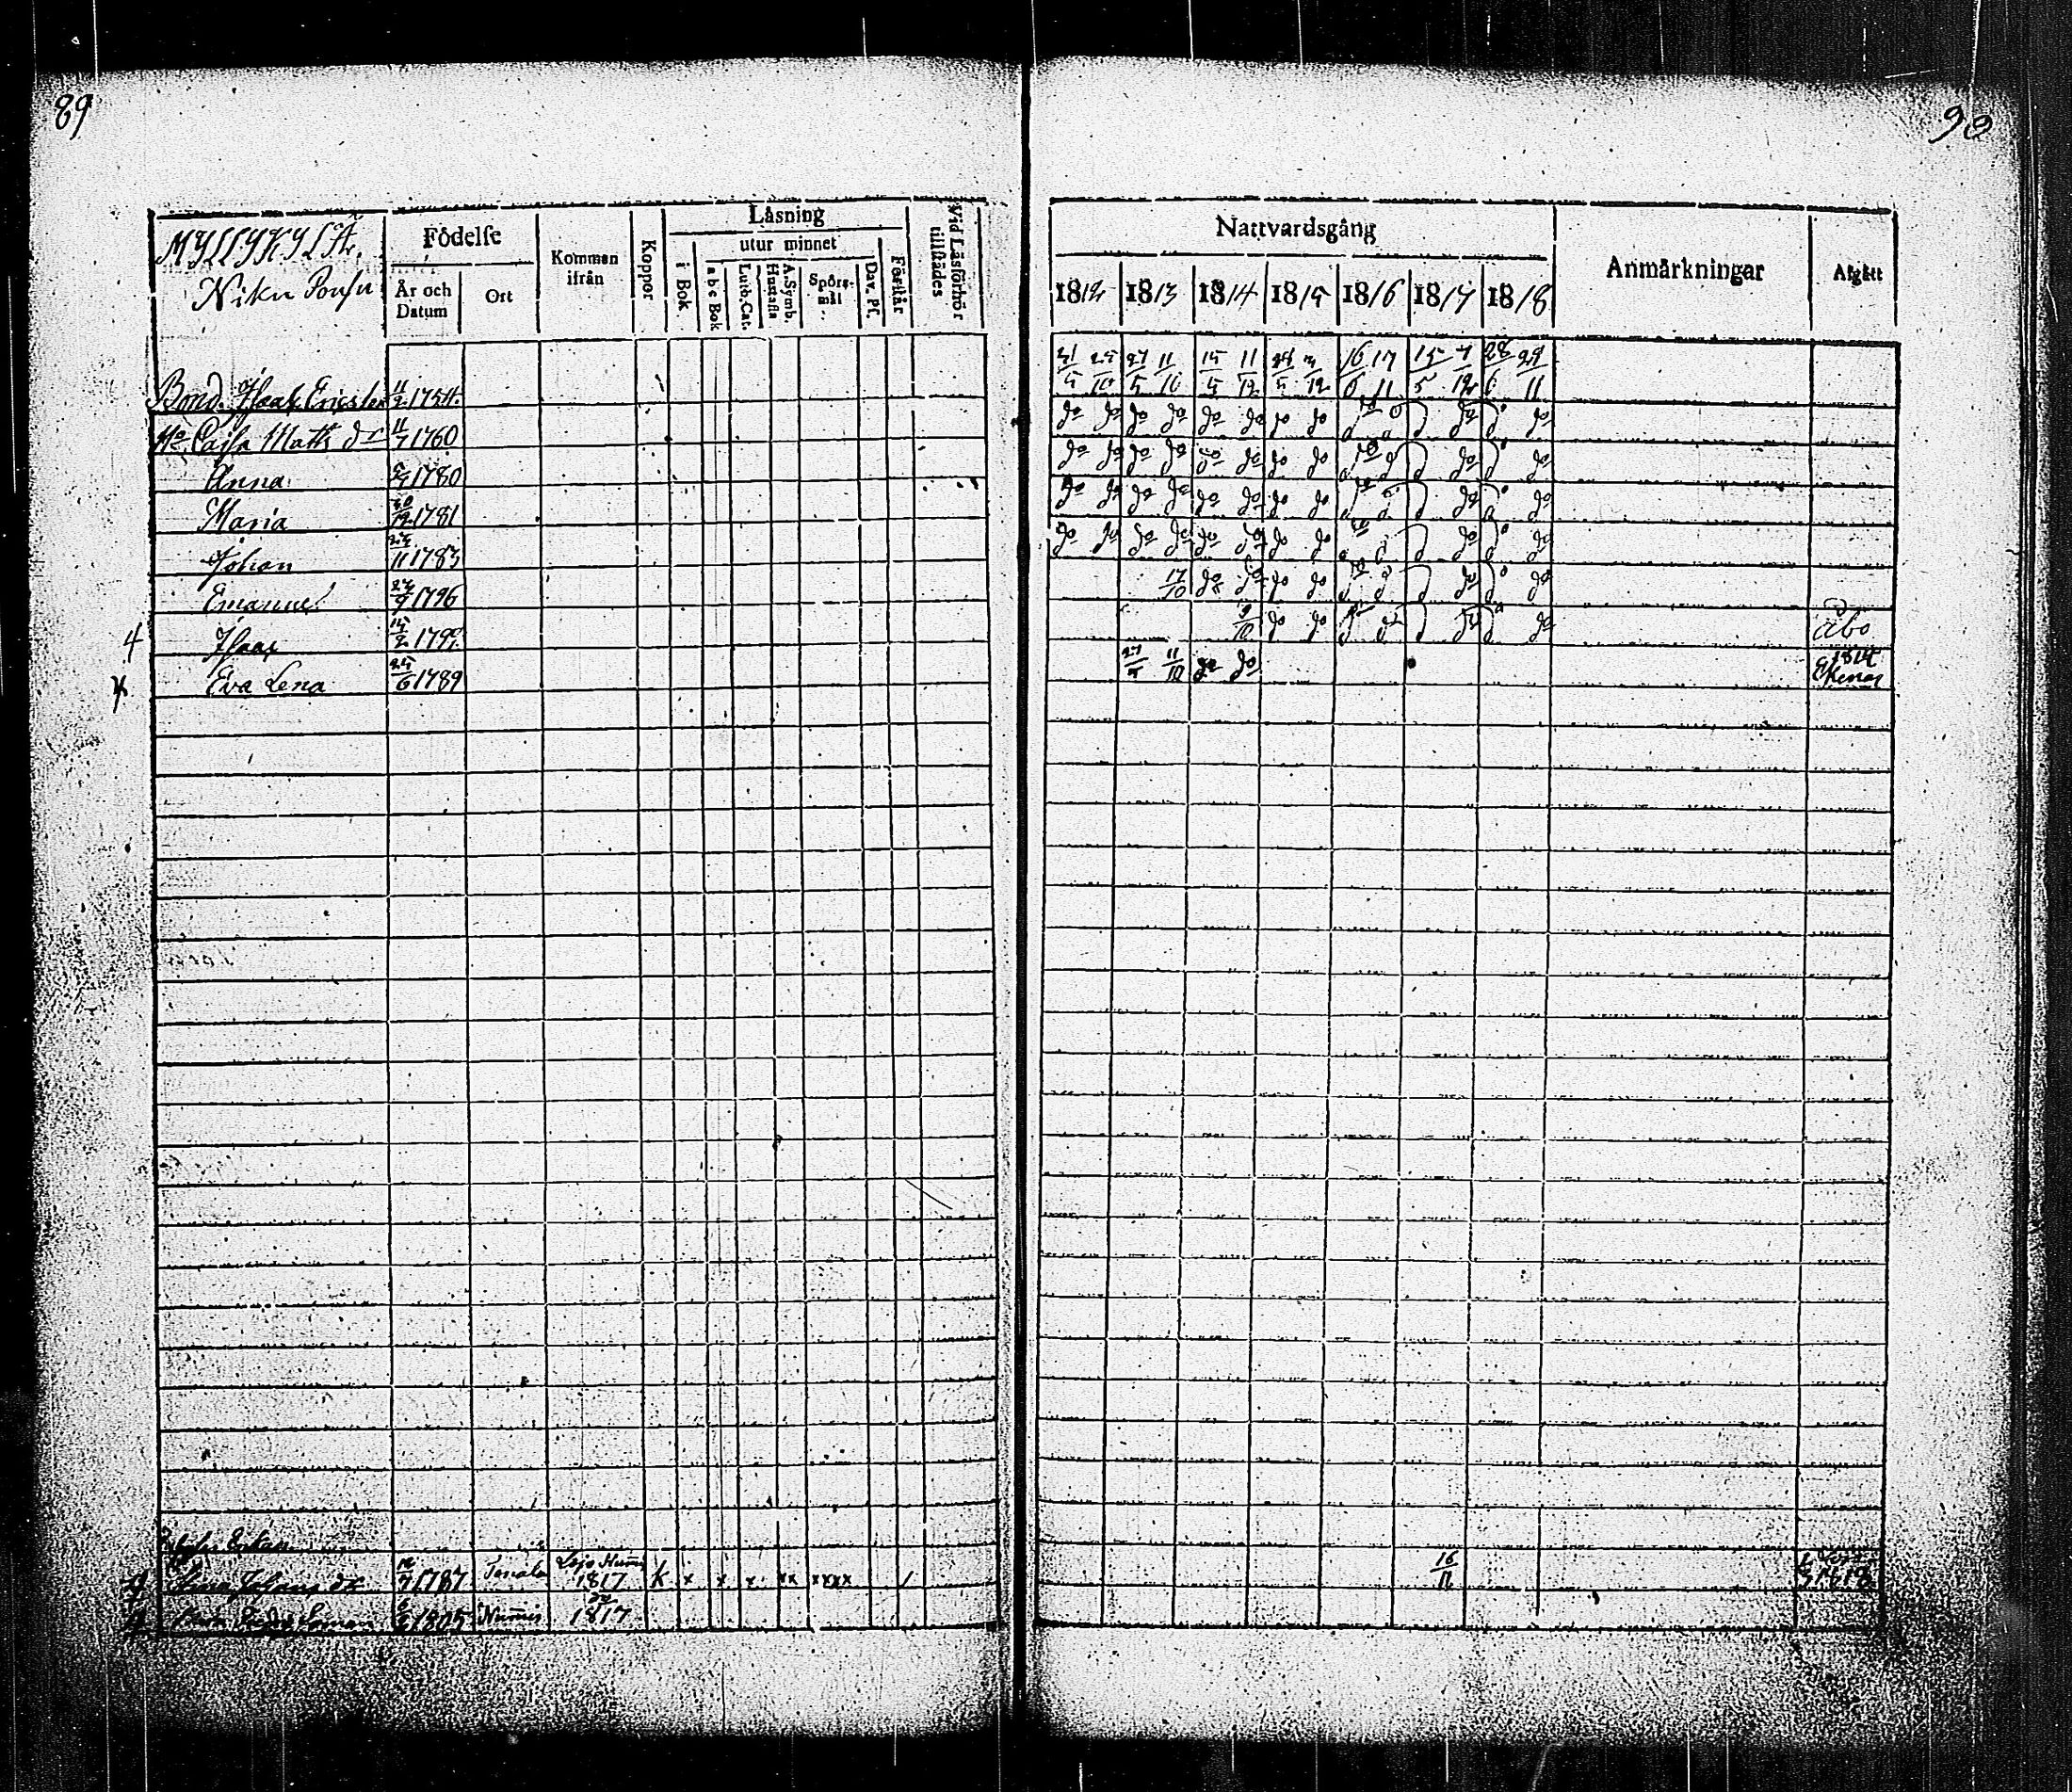 89
MYLLYKYLÄ.
Niku Pousu
Födelse
År och Datum
Ort
Kommen ifrån
Koppor
Läsning
i Bok
utur minnet
a b c Bok
Luth. Cat.
A. Symb. Hustafla
Spörs-mål
Dav. Ps.
Förstår
Vid Läsförhör tillstädes
Bond. Isaak Ericsson 4/2 1754.
Ho Cajsa Matts dr 11/7 1760
Anna 1780
Maria 20/12 1781
Johan 11 1783
Emanuel 24/9 1796
4 Isaac 15/2 1799.
Eva Lena 25/6 1789
Johans dr 1787 Tenala Lojo 1817 k x x x xx xxxx /
1805 Nummis do 1817
90
Nattvardsgång
1812 1813 1814 1815 1816 1817 1818
Anmärkningar
Afgått
31/5 25/10 27/5 11/10 15/5 11/12 28/5 3/12 16/6 17/11 15/5 7/12 28/6 29/11
do do do do do do do do do do do
do do do do do do do do do do do
do do do do do do do do do do do
do do do do do do do do do do do
17/10 do do do do do do do do
9/10 do do do do do do Åbo
27/5 11/10 do do 1814 Ekenäs
16/11